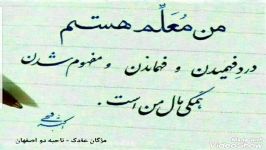 من مُعَلّم هستم
درد فهمیدن و فهماندن و مفهوم شدن
همگی مال من است.
مژگان عابدی - ناحیه دو اصفهان